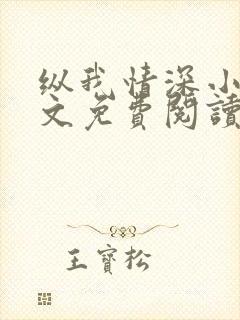 纵我情深小
文免費閱讀
王寶松